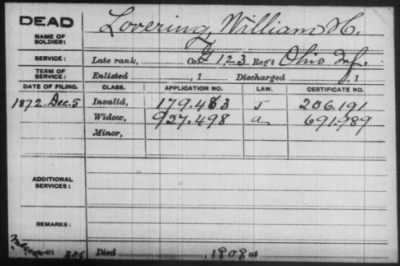 DEAD
NAME OF SOLDIER: Lovering, William H.
SERVICE: Late rank, Co. F 123 Reg't Ohio Inf.
TERM OF SERVICE: Enlisted , 1 Discharged , 1
DATE OF FILING. CLASS. APPLICATION NO. LAW. CERTIFICATE NO.
1872. Dec. 5 Invalid, 179.483 206.191
Widow, 927.498 a 691.989
Minor,
ADDITIONAL SERVICES:
REMARKS:
Died 1909 at